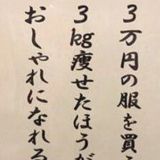 ３万円の服を買う
３kg痩せたほうが
おしゃれになれる